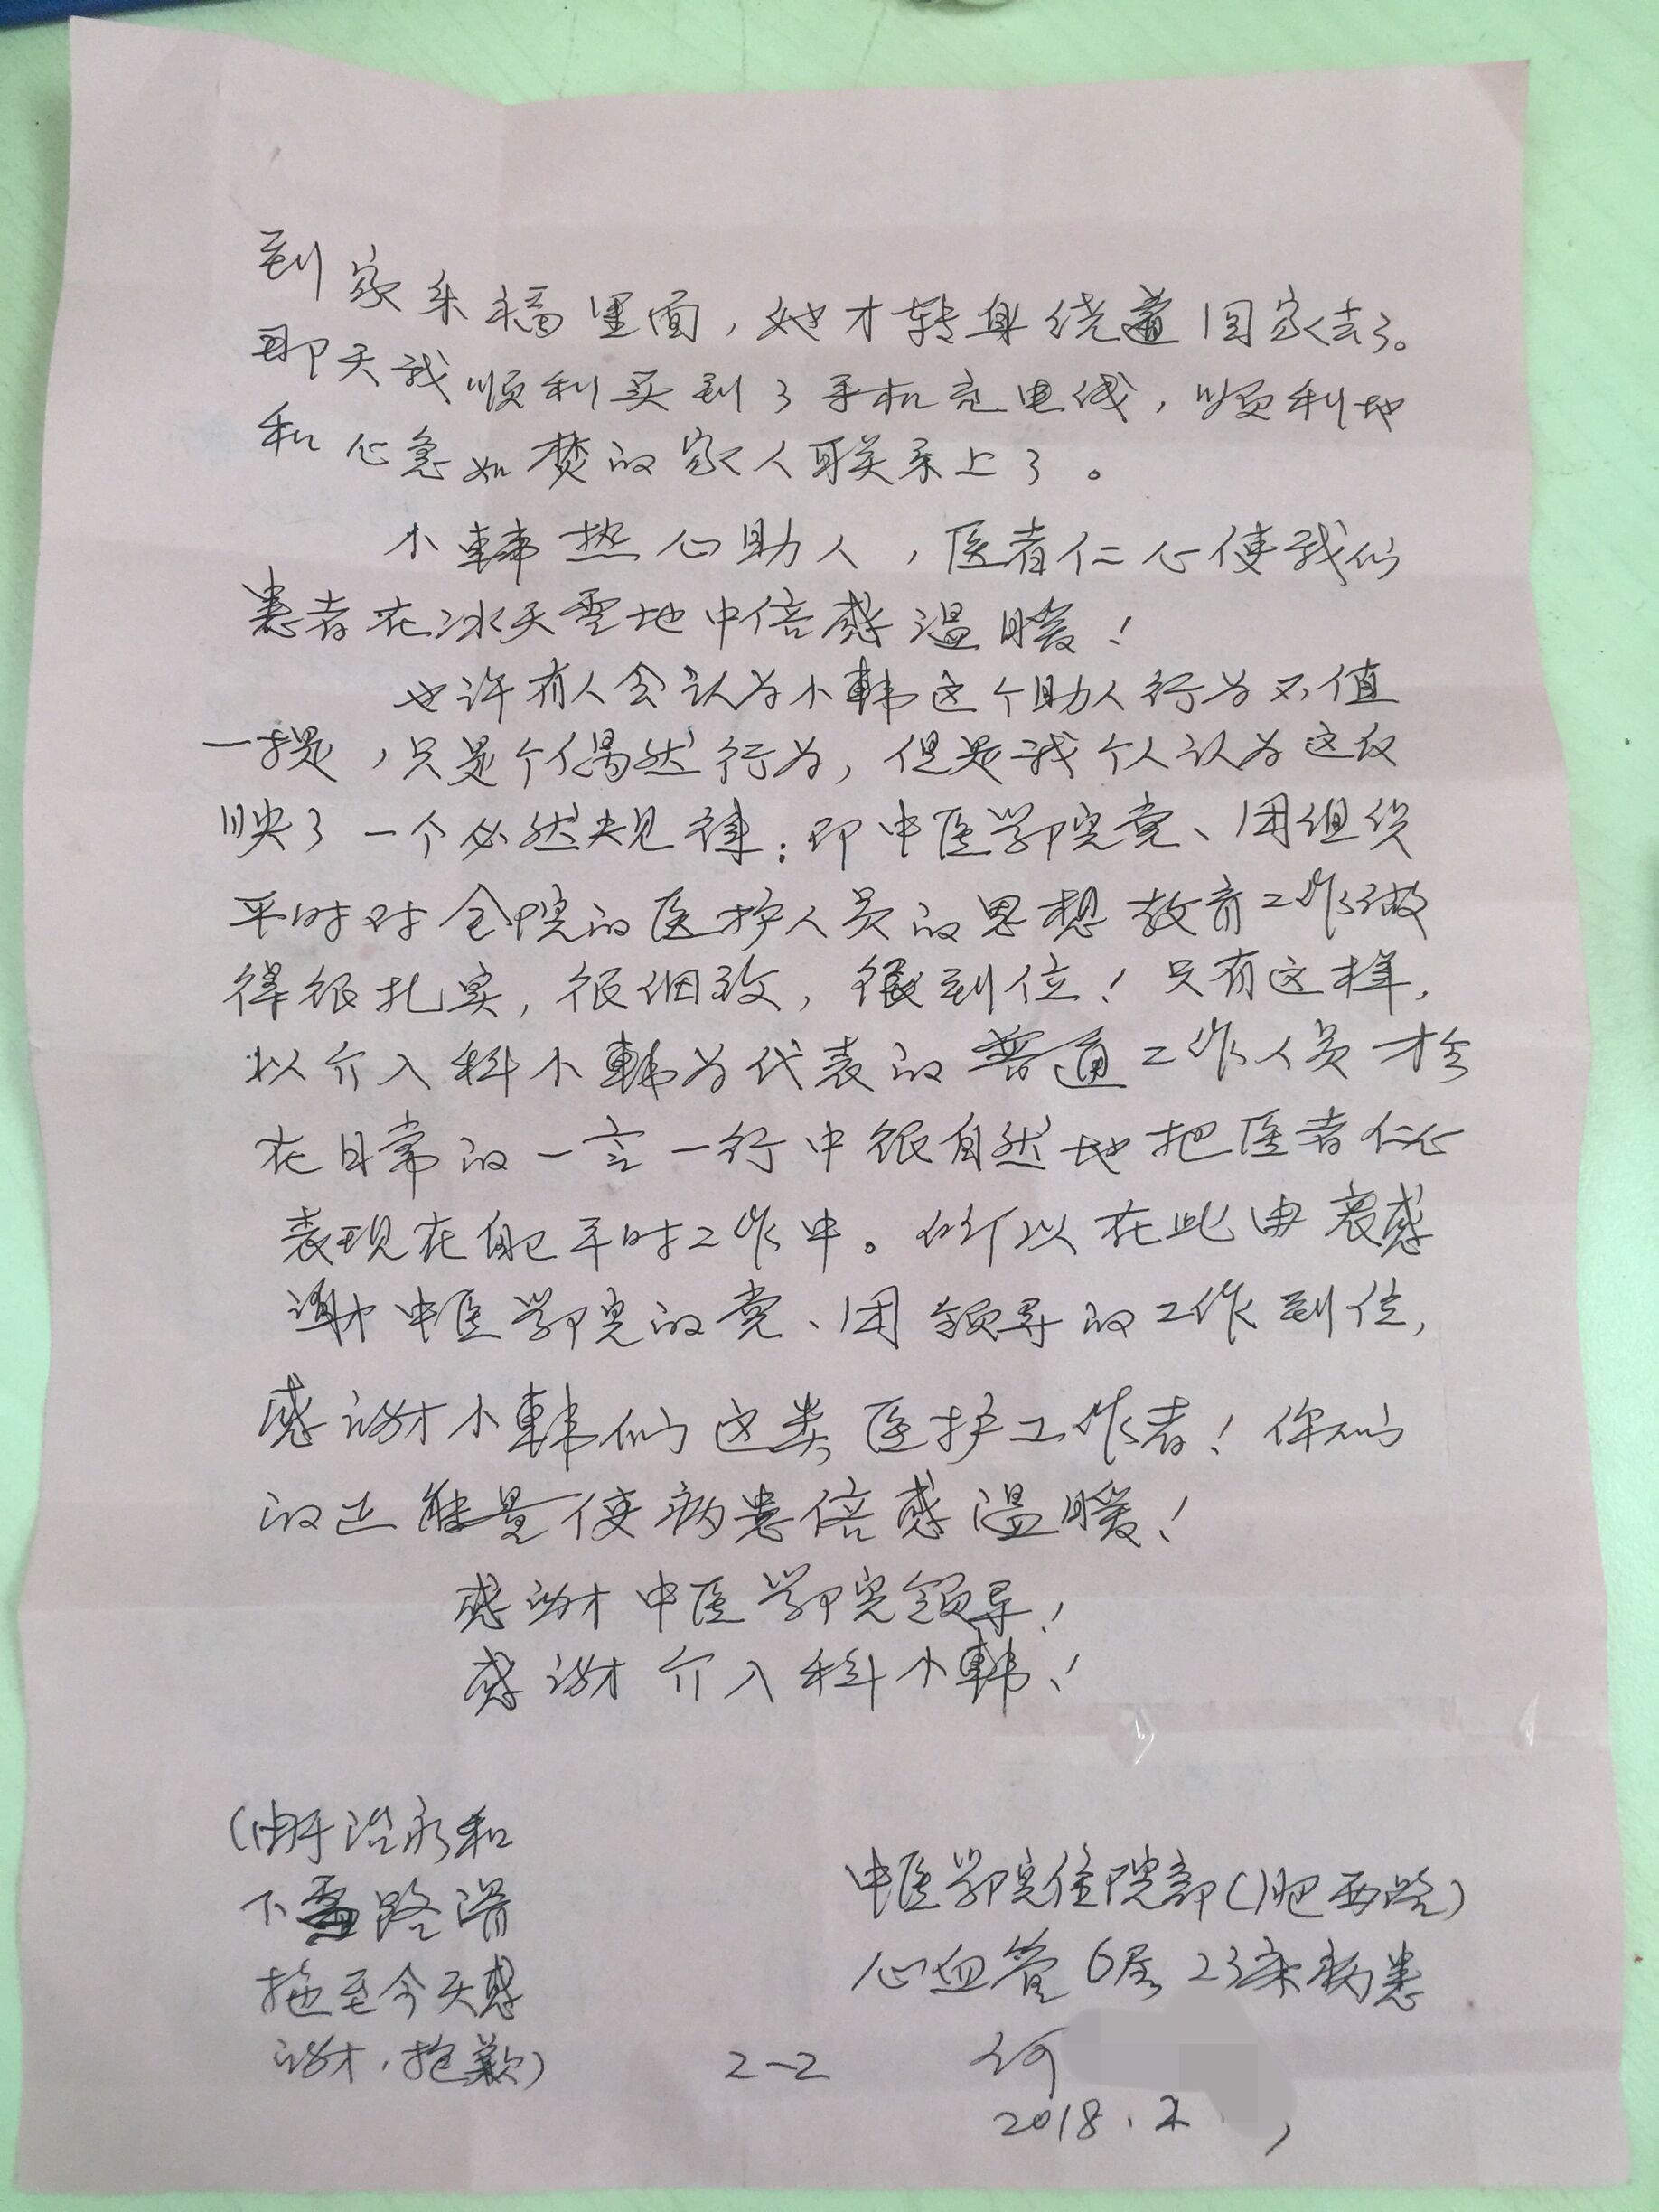 到家乐福里面，她才转身绕道回家去了。
那天我顺利买到了手机充电线，顺利地
和心急如焚的家人联系上了。
小韩热心助人，医者仁心使我们
患者在冰天雪地中倍感温暖！
也许有人会认为小韩这个助人行为不值
一提，只是个偶然行为，但是我个人认为这反
映了一个必然规律：即中医学院党、团组织
平时对全院的医护人员的思想教育工作做
得很扎实，很细致，很到位！只有这样，
以介入科小韩为代表的普通工作人员才会
在日常的一言一行中很自然地把医者仁心
表现在自己平时工作中。所以在此由衷感
谢中医学院的党、团领导的工作到位，
感谢小韩们这类医护工作者！你们
的正能量使病患倍感温暖！
感谢中医学院领导！
感谢介入科小韩！
（由于治疗和
下雪路滑
拖至今天感
谢，抱歉）
中医学院住院部（肥西路）
心血管6层23床病患
何
2-2
2018.2.